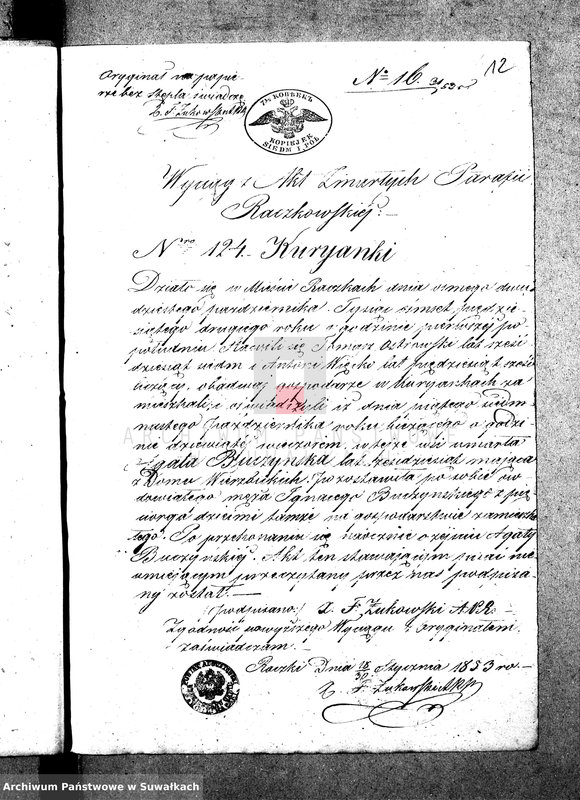 Oryginał na papie-
rze bez stępla świadczę
X. F. Żukowski
No 16 31/53 r
12
7½ КОПѢЕКЪ
KOPIEJEK
SIEDM I PÓŁ
Wyciąg z Akt Zmarłych Parafii
Raczkowskiéj.
Nro 124. Kuryanki
Działo się w Mieście Raczkach dnia ósmego dwu-
dziestego października. Tysiąc ośmset pięćdzie-
siątego drugiego roku o godzinie pierwszéj po
południu Stawili się Tomasz Ostrowski lat sześć-
dziesiąt siedm i Antoni Więcko lat pięćdziesiąt sześć
liczący, obadwaj gospodarze w Kuryankach za-
mieszkali, i oświadczyli iż dnia piątego
Października roku bieżącego o godzi-
nie dziewiątéj wieczorem w tejże wsi umarła
Agata Buczyńska lat sześćdziesiąt mająca
z Domu Wierzbickich. Pozostawiła po sobie ow-
dowiałego męża Ignacego Buczyńskiego z pię-
ciorga dziećmi tamże na gospodarstwie zamieszka-
łego. Po przekonaniu się naocznie o zejściu Agaty
Buczyńskiéj. Akt ten stawającym pisać nie
umiejącym przeczytany przez nas podpisa-
ny został.
(podpisano) X. F. Żukowski A.P.R.
Zgodność nowyższego Wyciągu z oryginałem
zaświadczam.
Raczki Dnia 18/30 Stycznia 1853 ro
X. F. Żukowski
Archiwum Państwowe w Suwałkach